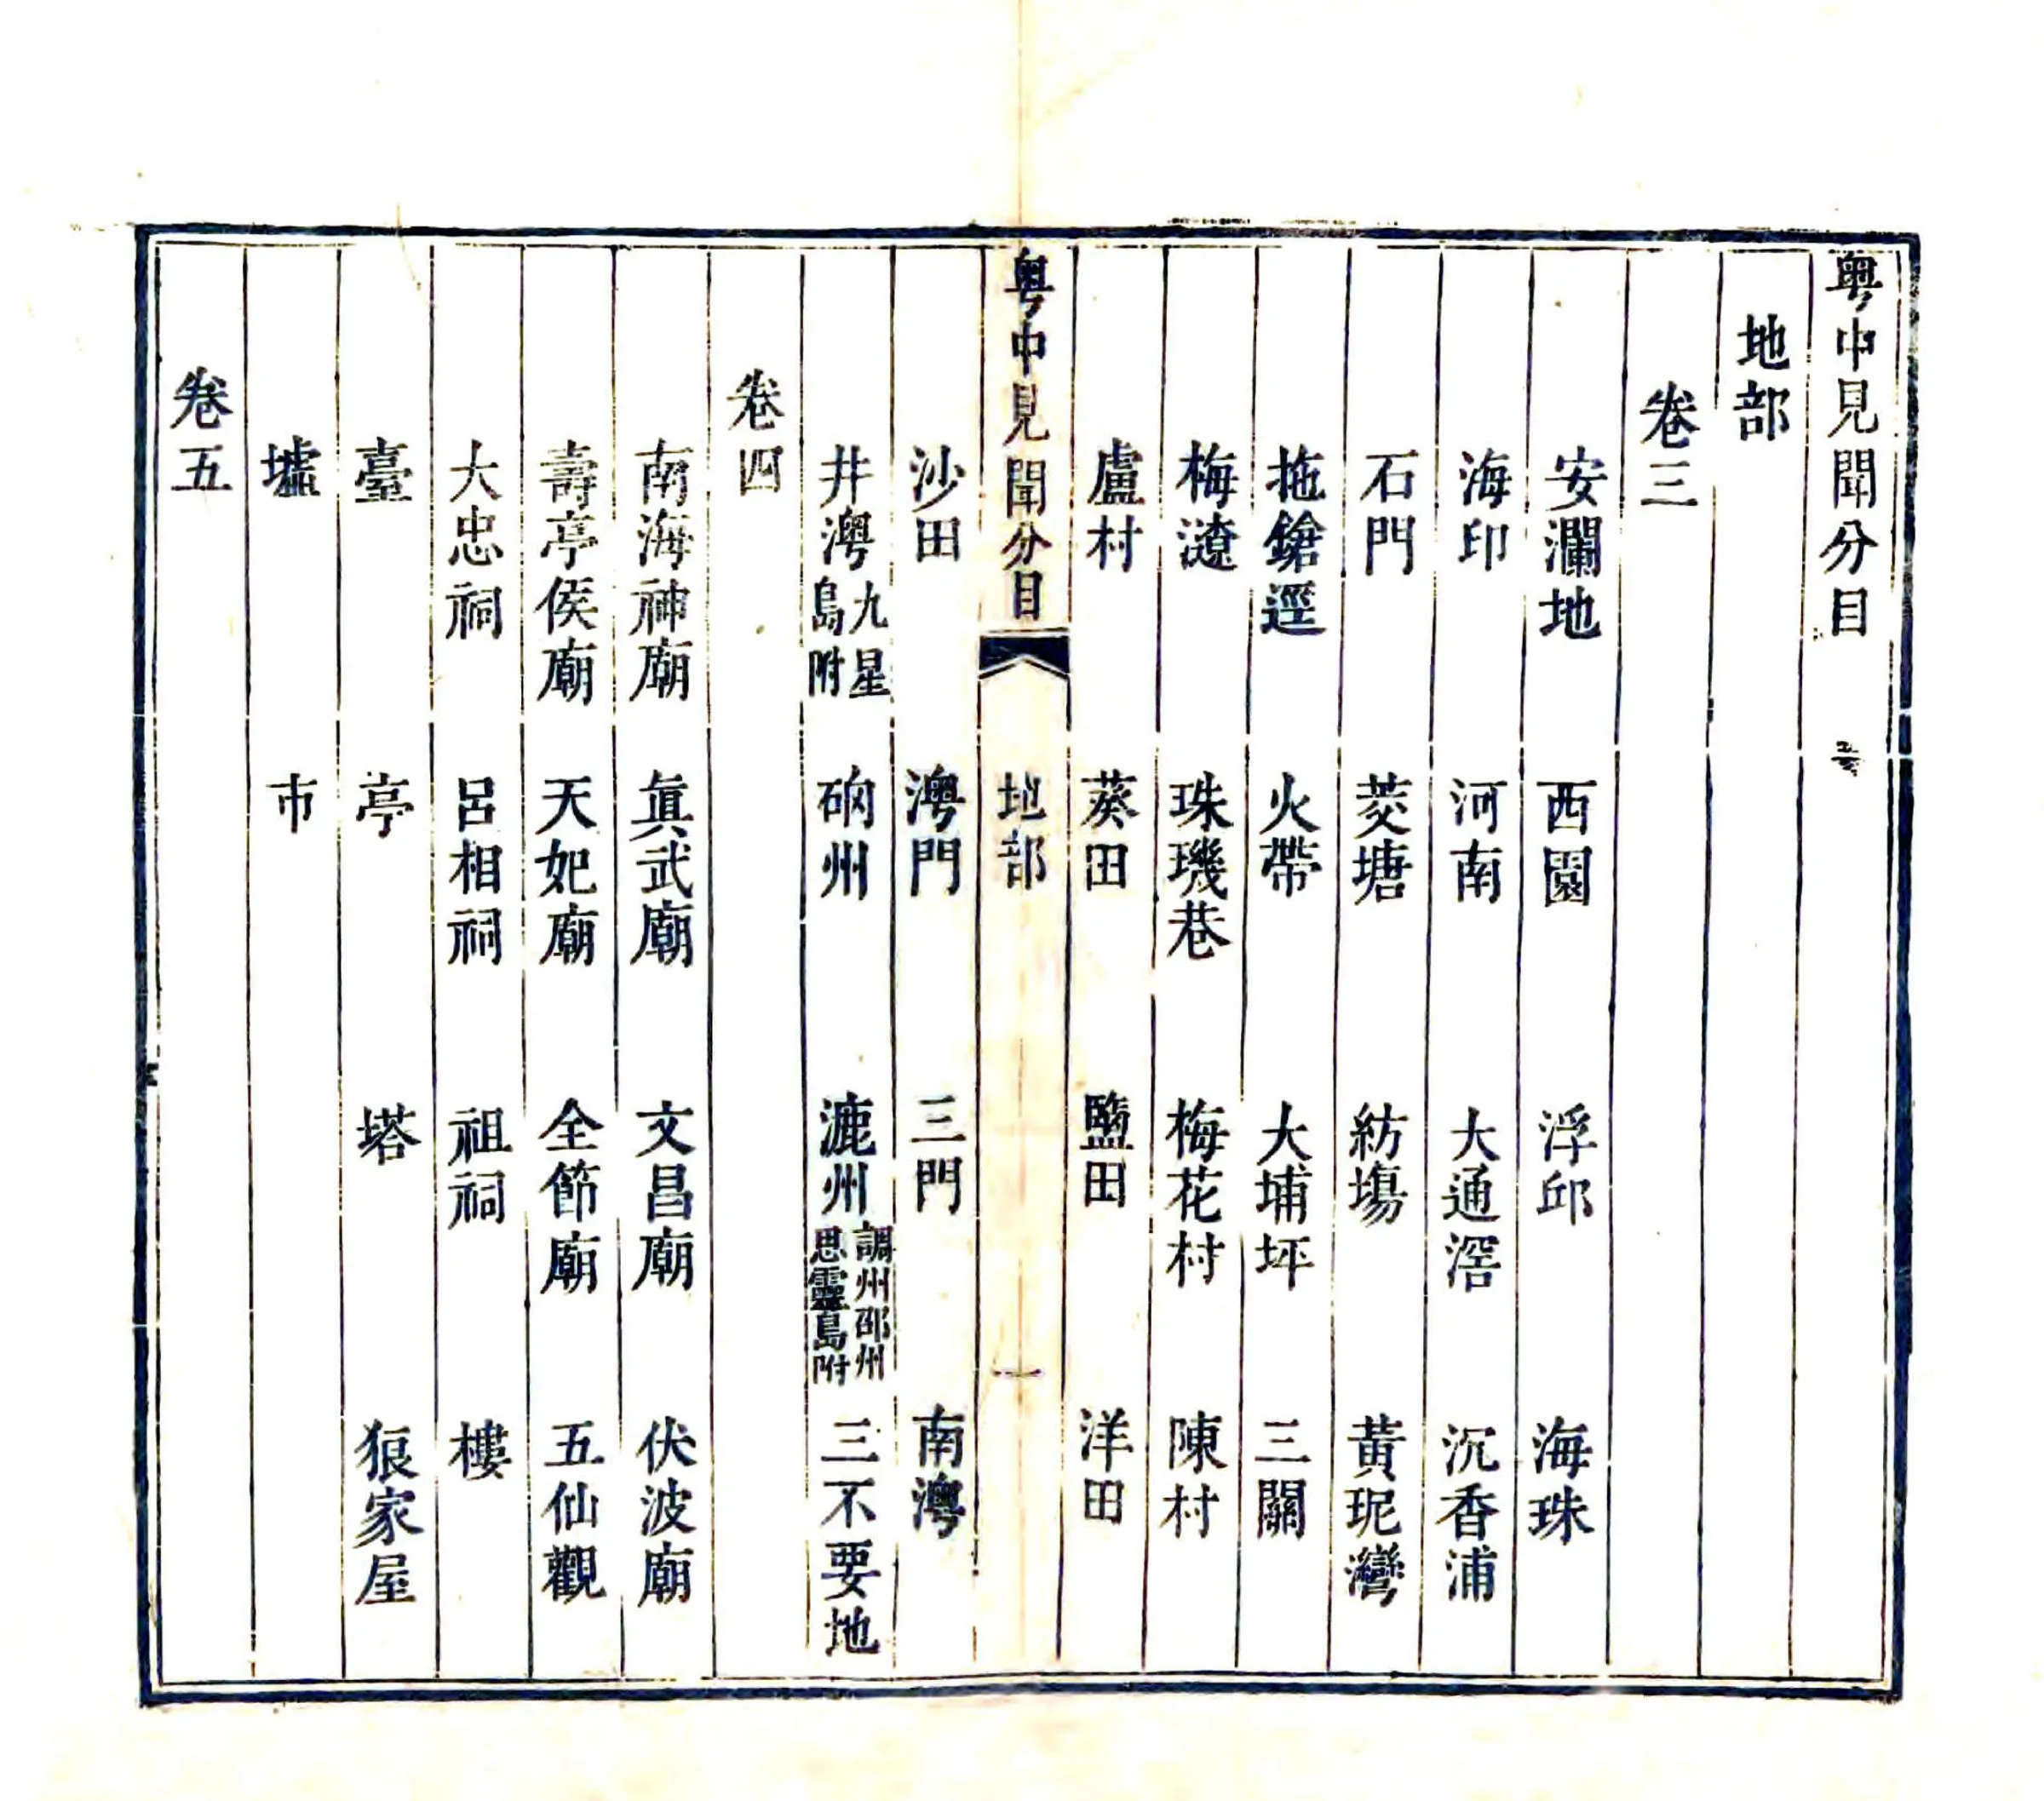 粤中見聞分目
地部
卷三
安瀾地 西園 浮邱 海珠
海印 河南 大通滘 沉香浦
石門 茭塘 紡塲 黃坭灣
拖鎗逕 火帶 大埔坪 三關
梅𤃩 珠璣巷 梅花村 陳村
盧村 葵田 鹽田 洋田
粤中見聞分目 地部 一
沙田 澳門 三門 南澳
井澳 九星島附 硇州 漉州 調州邵州思靈島附 三不要地
卷四
南海神廟 眞武廟 文昌廟 伏波廟
壽亭侯廟 天妃廟 全節廟 五仙觀
大忠祠 呂相祠 祖祠 樓
臺 亭 塔 狼家屋
墟 市
卷五